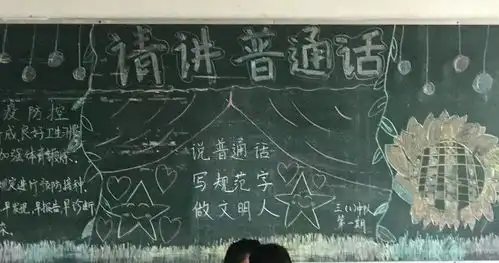 请讲普通话
疫防控
成良好卫生习惯
加强体育锻炼
规定进行预防接种
早发现,早报告,早诊断
说普通话
写规范字
做文明人
三(1)中队
第一期